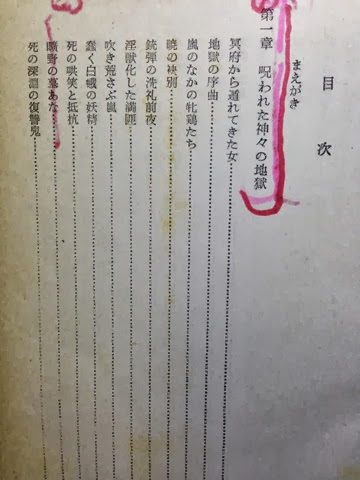 目次
まえがき
第一章 呪われた神々の地獄
冥府から遁れてきた女
地獄の序曲
嵐のなかの牝鶏たち
暁の袂別
銃弾の洗礼前夜
淫獣化した満匪
吹き荒さぶ嵐
蠢く白蛾の妖精
死の哄笑と抵抗
曠野の墓あな
死の深淵の復讐鬼